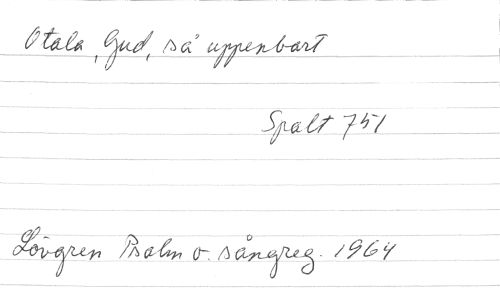 Otala, Gud, så uppenbart
Spalt 751
Lövgren Psalm o. sångreg. 1964